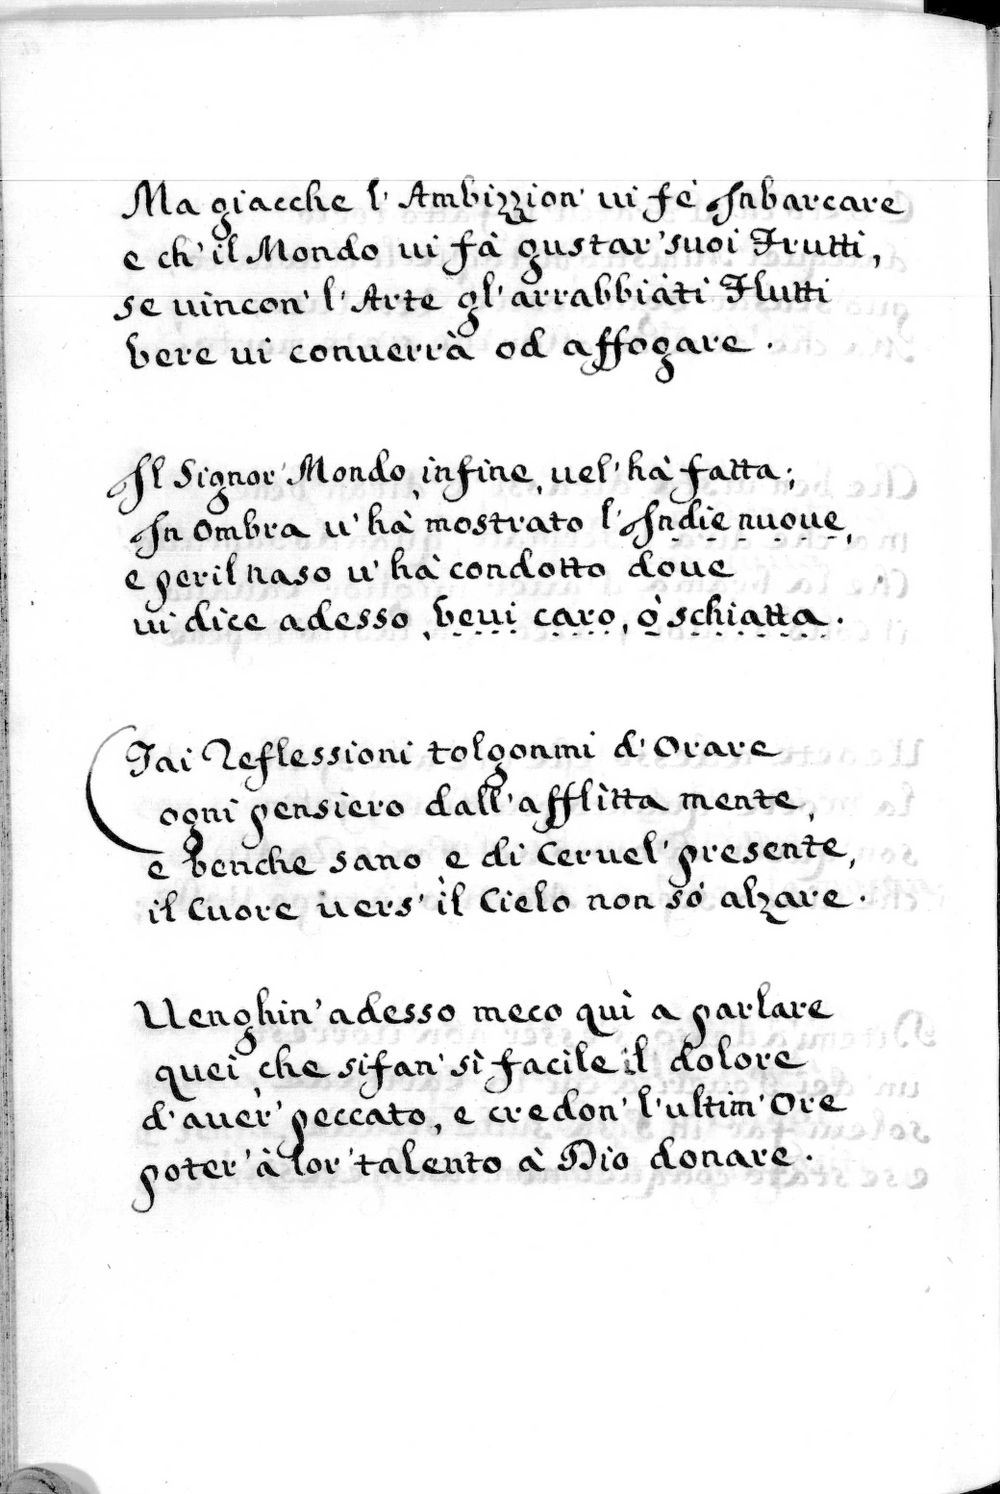 Ma giacche l' Ambizzion' ui fè Inbarcare
e ch' il Mondo ui fà gustar' suoi Frutti,
se uincon' l' Arte gl' arrabbiati Flutti
bere ui conuerrà od affogare .
Il Signor' Mondo, infine, uel' hà fatta;
In Ombra u' hà mostrato l' Indie nuoue,
e peril naso u' hà condotto doue
ui dice adesso, beui caro, ò schiatta .
Tai Reflessioni tolgonmi d' Orare
ogni pensiero dall' afflitta mente,
e benche sano è di Ceruel' presente,
il Cuore uers' il Cielo non sò alzare .
Uenghin' adesso meco quì a parlare
quei, che sifan' sì facile il dolore
d' auer' peccato, e credon' l' ultim' Ore
poter' à lor' talento à Dio donare .